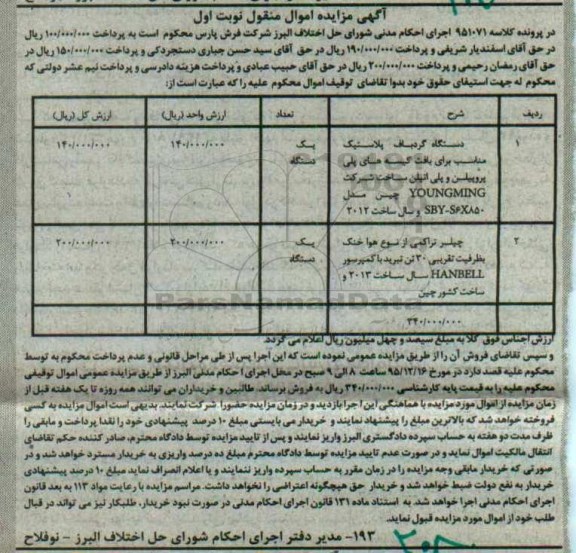 آگهی مزایده اموال منقول نوبت اول
در پرونده کلاسه ۹۵۱۰۷۱ اجرای احکام مدنی شورای حل اختلاف البرز شرکت فرش پارس محکوم است به پرداخت ۱۰۰/۰۰۰/۰۰۰ ریال
در حق آقای اسفندیار شریفی و پرداخت ۱۹۰/۰۰۰/۰۰۰ ریال در حق آقای سید حسن جباری دستجردکی و پرداخت ۱۵۰/۰۰۰/۰۰۰ ریال در
حق آقای رمضان رحیمی و پرداخت ۲۰۰/۰۰۰/۰۰۰ ریال در حق آقای حبیب عبادی و پرداخت هزینه دادرسی و پرداخت نیم عشر دولتی که
محکوم له جهت استیفای حقوق خود بدوا تقاضای توقیف اموال محکوم علیه را که عبارت است از:
ردیف شرح تعداد ارزش واحد (ریال) ارزش کل (ریال)
۱ دستگاه گردباف پلاستیک یک ۱۴۰/۰۰۰/۰۰۰ ۱۴۰/۰۰۰/۰۰۰
مناسب برای بافت گیسه های پلی دستگاه
پروپیلن و پلی اتیلن ساخت شرکت
YOUNGMING چین مدل
SBY-S۶X۸۵۰ و سال ساخت ۲۰۱۲
۲ چیلر تراکمی از نوع هوا خنک یک ۲۰۰/۰۰۰/۰۰۰ ۲۰۰/۰۰۰/۰۰۰
بظرفیت تقریبی ۳۰ تن تبرید با کمپرسور دستگاه
HANBELL سال ساخت ۲۰۱۳ و
ساخت کشور چین
۳۴۰/۰۰۰/۰۰۰
ParsNamadData
ارزش اجناس فوق کلا به مبلغ سیصد و چهل میلیون ریال اعلام می گردد.
و سپس تقاضای فروش آن را از طریق مزایده عمومی نموده است که این اجرا پس از طی مراحل قانونی و عدم پرداخت محکوم به توسط
محکوم علیه قصد دارد در مورخ ۹۵/۱۲/۱۶ ساعت ۸ الی ۹ صبح در محل اجرای احکام مدنی البرز از طریق مزایده عمومی اموال توقیفی
محکوم علیه را به قیمت پایه کارشناسی ۳۴۰/۰۰۰/۰۰۰ ریال به فروش برساند. طالبین و خریداران می توانند همه روزه تا یک هفته قبل از
زمان مزایده از اموال مورد مزایده با هماهنگی این اجرا بازدید و در زمان مزایده حضورا شرکت نمایند. بدیهی است اموال مزایده به کسی
فروخته خواهد شد که بالاترین مبلغ را پیشنهاد نمایند و خریدار می بایستی مبلغ ۱۰ درصد پیشنهادی خود را نقدا پرداخت و مابقی را
ظرف مدت دو هفته به حساب سپرده دادگستری البرز واریز نمایند و پس از تایید مزایده توسط دادگاه محترم، صادر کننده حکم تقاضای
انتقال مالکیت اموال نماید و در صورت عدم تایید مزایده توسط دادگاه محترم مبلغ ده درصد واریزی به خریدار مسترد خواهد شد و در
صورتی که خریدار مابقی وجه مزایده را در زمان مقرر به حساب سپرده واریز ننمایند و یا اعلام انصراف نماید مبلغ ۱۰ درصد پیشنهادی
خریدار به نفع دولت ضبط خواهد شد و خریدار حق هیچگونه اعتراضی را نخواهد داشت. مراسم مزایده با رعایت مواد ۱۱۳ به بعد قانون
اجرای احکام مدنی اجرا خواهد شد. به استناد ماده ۱۳۱ قانون اجرای احکام مدنی در صورت نبود خریدار، طلبکار نیز می تواند در قبال
طلب خود از اموال مورد مزایده قبول نماید.
۱۹۳- مدیر دفتر اجرای احکام شورای حل اختلاف البرز - نوفلاح